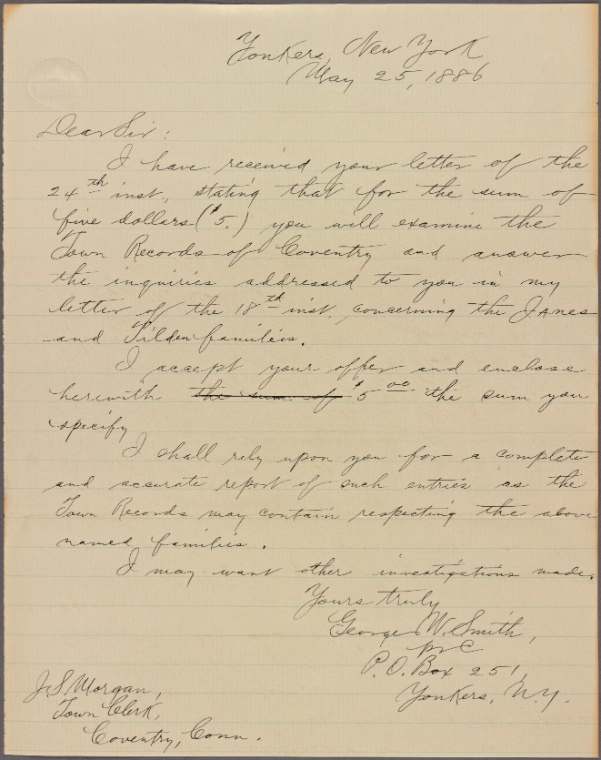 Yonkers, New York
May 25, 1886
Dear Sir:
I have received your letter of the
24th inst., stating that for the sum of
five dollars ($5.) you will examine the
Town Records of Coventry and answer
the inquiries addressed to you in my
letter of the 18th inst., concerning the Janes
and Tilden families.
I accept your offer and enclose
herewith the sum of $5.00 the sum you
specify
I shall rely upon you for a complete
and accurate report of such entries as the
Town Records may contain respecting the above
named families.
I may want other investigations made.
Yours truly
George W. Smith,
P.O. Box 251,
Yonkers, N.Y.
J.S. Morgan,
Town Clerk,
Coventry, Conn.